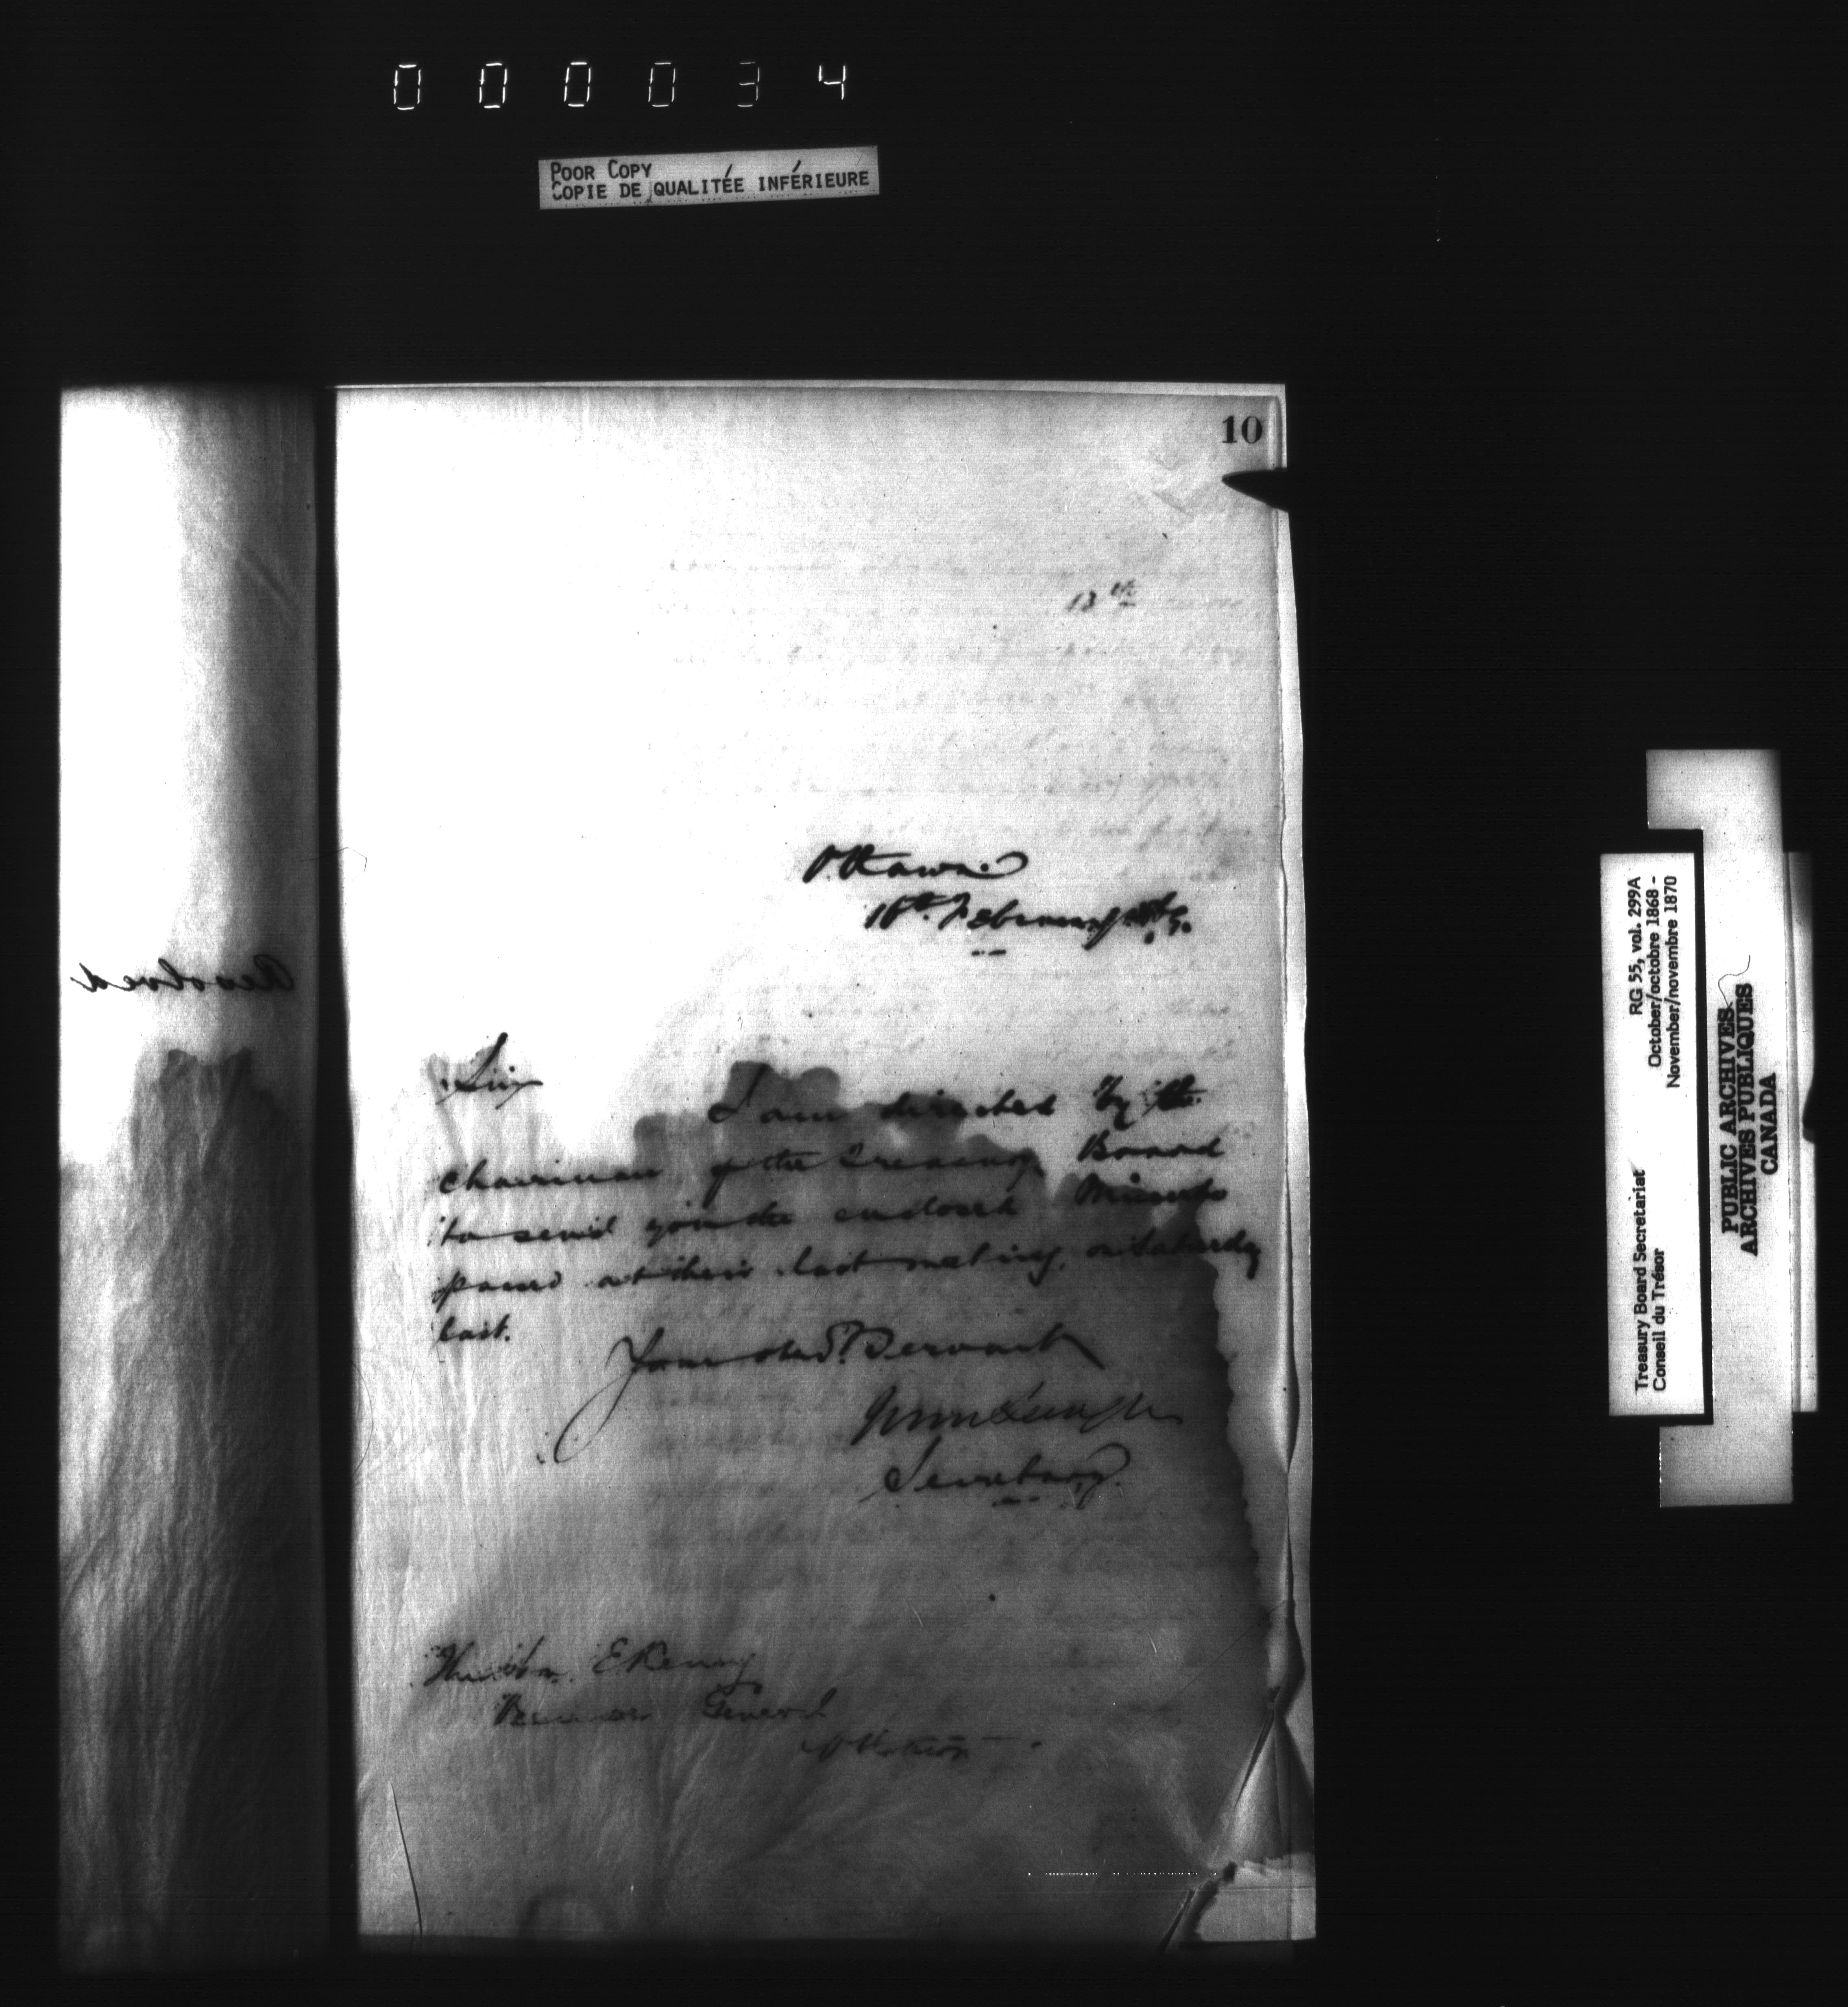 000034
POOR COPY
COPIE DE QUALITÉE INFÉRIEURE
10
13th
Ottawa
18th February
Sir
I am directed by the
chairman of the Treasury Board
to send you the enclosed Minute
passed at their last meeting, on Saturday
last.
Your obed. Servant
Secretary.
The Hon. E Kenny
General
Ottawa
Resolved
RG 55, vol. 299A
October/octobre 1868 -
November/novembre 1870
Treasury Board Secretariat
Conseil du Trésor
PUBLIC ARCHIVES
ARCHIVES PUBLIQUES
CANADA